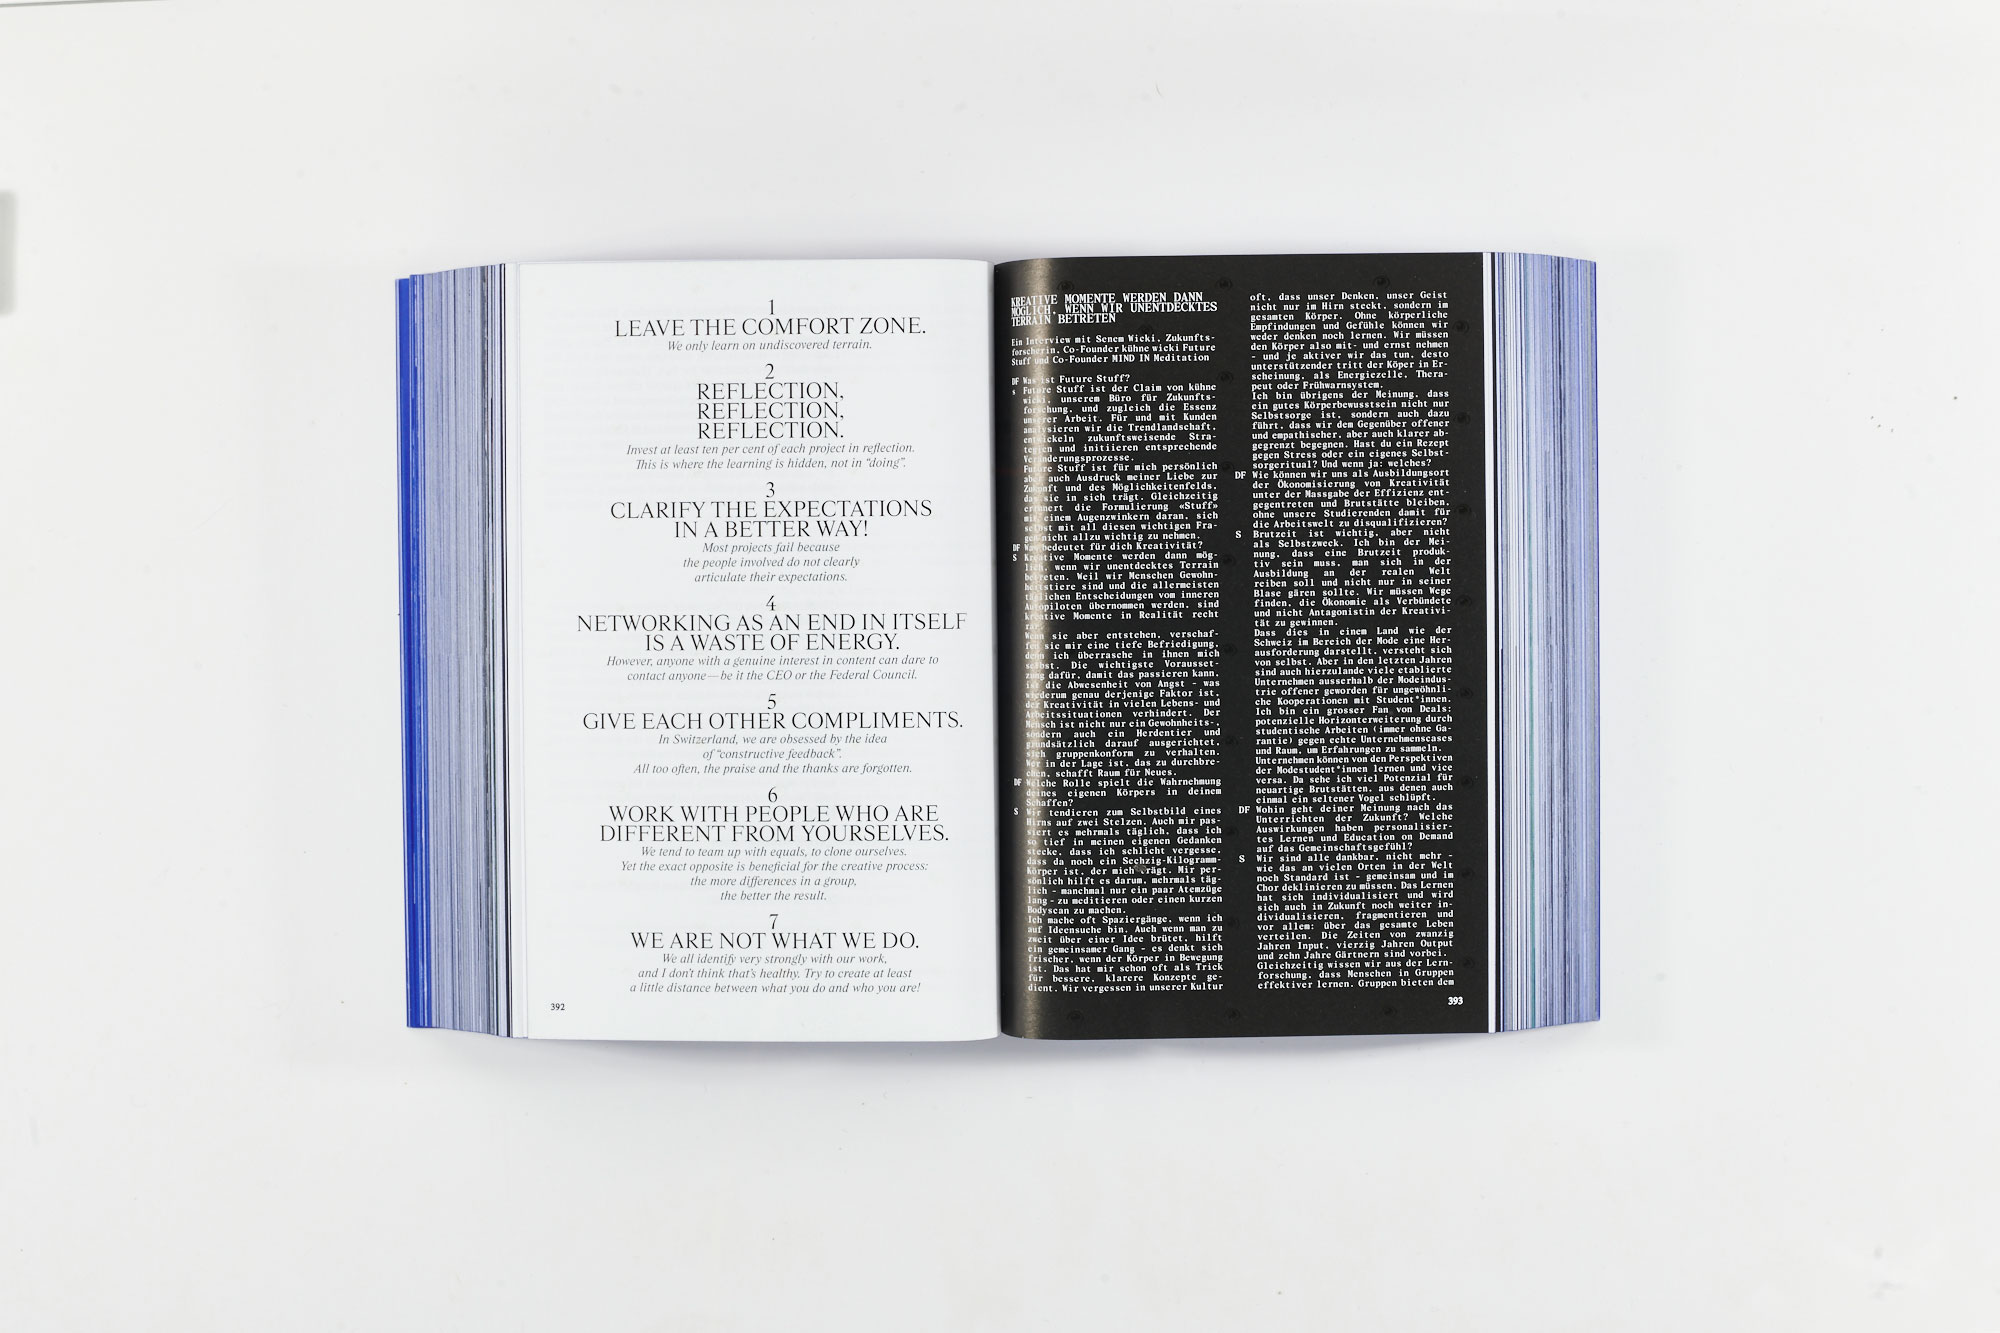 1
LEAVE THE COMFORT ZONE.
We only learn on undiscovered terrain.
2
REFLECTION,
REFLECTION,
REFLECTION.
Invest at least ten per cent of each project in reflection.
This is where the learning is hidden, not in “doing”.
3
CLARIFY THE EXPECTATIONS
IN A BETTER WAY!
Most projects fail because
the people involved do not clearly
articulate their expectations.
4
NETWORKING AS AN END IN ITSELF
IS A WASTE OF ENERGY.
However, anyone with a genuine interest in content can dare to
contact anyone — be it the CEO or the Federal Council.
5
GIVE EACH OTHER COMPLIMENTS.
In Switzerland, we are obsessed by the idea
of “constructive feedback”.
All too often, the praise and the thanks are forgotten.
6
WORK WITH PEOPLE WHO ARE
DIFFERENT FROM YOURSELVES.
We tend to team up with equals, to clone ourselves.
Yet the exact opposite is beneficial for the creative process:
the more differences in a group,
the better the result.
7
WE ARE NOT WHAT WE DO.
We all identify very strongly with our work,
and I don't think that's healthy. Try to create at least
a little distance between what you do and who you are!
392
KREATIVE MOMENTE WERDEN DANN
MÖGLICH, WENN WIR UNENTDECKTES
TERRAIN BETRETEN
Ein Interview mit Senem Wicki, Zukunfts-
forscherin, Co-Founder kühne wicki Future
Stuff und Co-Founder MIND IN Meditation
DF Was ist Future Stuff?
S Future Stuff ist der Claim von kühne
wicki, unserem Büro für Zukunfts-
forschung, und zugleich die Essenz
unserer Arbeit. Für und mit Kunden
analysieren wir die Trendlandschaft,
entwickeln zukunftsweisende Stra-
tegien und initiieren entsprechende
Veränderungsprozesse.
Future Stuff ist für mich persönlich
aber auch Ausdruck meiner Liebe zur
Zukunft und des Möglichkeitenfelds,
das sie in sich trägt. Gleichzeitig
erinnert die Formulierung «Stuff»
mit einem Augenzwinkern daran, sich
selbst mit all diesen wichtigen Fra-
gen nicht allzu wichtig zu nehmen.
DF Was bedeutet für dich Kreativität?
S Kreative Momente werden dann mög-
lich, wenn wir unentdecktes Terrain
betreten. Weil wir Menschen Gewohn-
heitstiere sind und die allermeisten
täglichen Entscheidungen vom inneren
Autopiloten übernommen werden, sind
kreative Momente in Realität recht
rar.
Wenn sie aber entstehen, verschaf-
fen sie mir eine tiefe Befriedigung,
denn ich überrasche in ihnen mich
selbst. Die wichtigste Vorausset-
zung dafür, damit das passieren kann,
ist die Abwesenheit von Angst - was
wiederum genau derjenige Faktor ist,
der Kreativität in vielen Lebens- und
Arbeitssituationen verhindert. Der
Mensch ist nicht nur ein Gewohnheits-,
sondern auch ein Herdentier und
grundsätzlich darauf ausgerichtet,
sich gruppenkonform zu verhalten.
Wer in der Lage ist, das zu durchbre-
chen, schafft Raum für Neues.
DF Welche Rolle spielt die Wahrnehmung
deines eigenen Körpers in deinem
Schaffen?
S Wir tendieren zum Selbstbild eines
Hirns auf zwei Stelzen. Auch mir pas-
siert es mehrmals täglich, dass ich
so tief in meinen eigenen Gedanken
stecke, dass ich schlicht vergesse,
dass da noch ein Sechzig-Kilogramm-
Körper ist, der mich trägt. Mir per-
sönlich hilft es darum, mehrmals täg-
lich - manchmal nur ein paar Atemzüge
lang - zu meditieren oder einen kurzen
Bodyscan zu machen.
Ich mache oft Spaziergänge, wenn ich
auf Ideensuche bin. Auch wenn man zu
zweit über einer Idee brütet, hilft
ein gemeinsamer Gang - es denkt sich
frischer, wenn der Körper in Bewegung
ist. Das hat mir schon oft als Trick
für bessere, klarere Konzepte ge-
dient. Wir vergessen in unserer Kultur
oft, dass unser Denken, unser Geist
nicht nur im Hirn steckt, sondern im
gesamten Körper. Ohne körperliche
Empfindungen und Gefühle können wir
weder denken noch lernen. Wir müssen
den Körper also mit- und ernst nehmen
- und je aktiver wir das tun, desto
unterstützender tritt der Köper in Er-
scheinung, als Energiezelle, Thera-
peut oder Frühwarnsystem.
Ich bin übrigens der Meinung, dass
ein gutes Körperbewusstsein nicht nur
Selbstsorge ist, sondern auch dazu
führt, dass wir dem Gegenüber offener
und empathischer, aber auch klarer ab-
gegrenzt begegnen. Hast du ein Rezept
gegen Stress oder ein eigenes Selbst-
sorgeritual? Und wenn ja: welches?
DF Wie können wir uns als Ausbildungsort
der Ökonomisierung von Kreativität
unter der Massgabe der Effizienz ent-
gegentreten und Brutstätte bleiben,
ohne unsere Studierenden damit für
die Arbeitswelt zu disqualifizieren?
S Brutzeit ist wichtig, aber nicht
als Selbstzweck. Ich bin der Mei-
nung, dass eine Brutzeit produk-
tiv sein muss, man sich in der
Ausbildung an der realen Welt
reiben soll und nicht nur in seiner
Blase gären sollte. Wir müssen Wege
finden, die Ökonomie als Verbündete
und nicht Antagonistin der Kreativi-
tät zu gewinnen.
Dass dies in einem Land wie der
Schweiz im Bereich der Mode eine Her-
ausforderung darstellt, versteht sich
von selbst. Aber in den letzten Jahren
sind auch hierzulande viele etablierte
Unternehmen ausserhalb der Modeindus-
trie offener geworden für ungewöhnli-
che Kooperationen mit Student*innen.
Ich bin ein grosser Fan von Deals:
potenzielle Horizonterweiterung durch
studentische Arbeiten (immer ohne Ga-
rantie) gegen echte Unternehmenscases
und Raum, um Erfahrungen zu sammeln.
Unternehmen können von den Perspektiven
der Modestudent*innen lernen und vice
versa. Da sehe ich viel Potenzial für
neuartige Brutstätten, aus denen auch
einmal ein seltener Vogel schlüpft.
DF Wohin geht deiner Meinung nach das
Unterrichten der Zukunft? Welche
Auswirkungen haben personalisier-
tes Lernen und Education on Demand
auf das Gemeinschaftsgefühl?
S Wir sind alle dankbar, nicht mehr -
wie das an vielen Orten in der Welt
noch Standard ist - gemeinsam und im
Chor deklinieren zu müssen. Das Lernen
hat sich individualisiert und wird
sich auch in Zukunft noch weiter in-
dividualisieren, fragmentieren und
vor allem: über das gesamte Leben
verteilen. Die Zeiten von zwanzig
Jahren Input, vierzig Jahren Output
und zehn Jahre Gärtnern sind vorbei.
Gleichzeitig wissen wir aus der Lern-
forschung, dass Menschen in Gruppen
effektiver lernen. Gruppen bieten dem
393